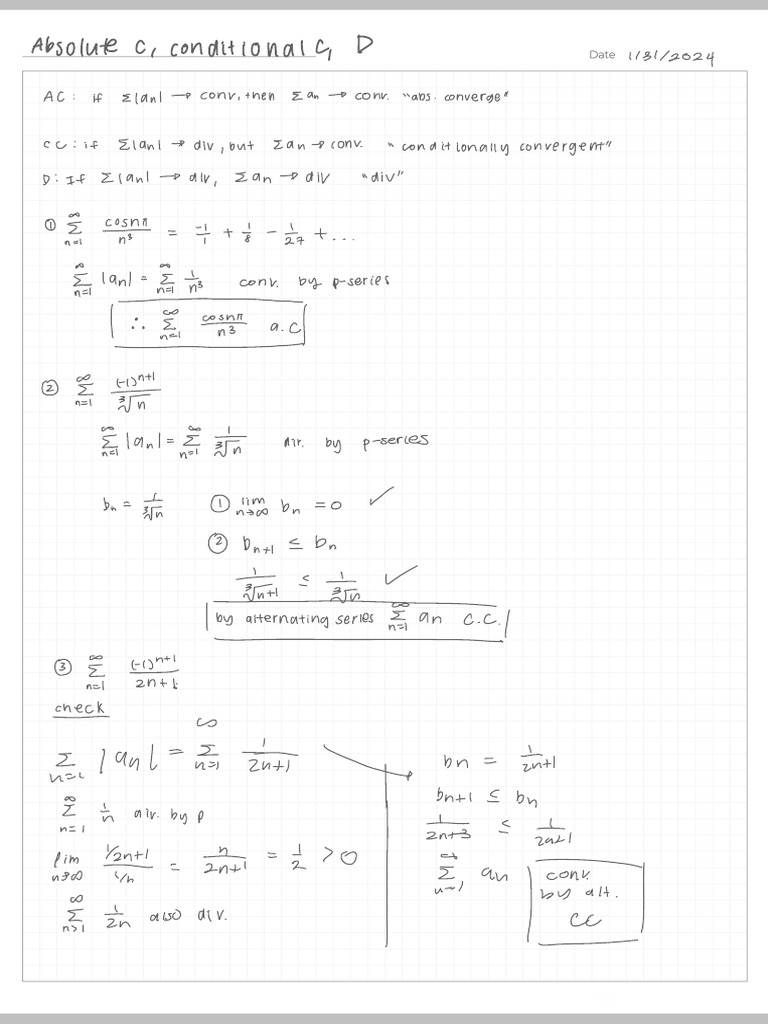 Absolute C, conditional C, D
Date 1/31/2024
AC: if Σ|an| → conv, then Σan → conv. "abs. converge"
CC: if Σ|an| → div, but Σan → conv. "conditionally convergent"
D: If Σ|an| → div, Σan → div "div"
① ∞Σn=1 cosnπ/n³ = -1/1 + 1/8 - 1/27 + ...
∞Σn=1 |an| = ∞Σn=1 1/n³ conv. by p-series
∴ ∞Σn=1 cosnπ/n³ a.c
② ∞Σn=1 (-1)^n+1/∛n
∞Σn=1 |an| = ∞Σn=1 1/∛n div. by p-series
bn = 1/∛n ① lim n→∞ bn = 0 ✓
② bn+1 ≤ bn
1/∛n+1 ≤ 1/∛n ✓
by alternating series ∞Σn=1 an C.C.
③ ∞Σn=1 (-1)^n+1/2n+1
check
Σn=1 |an| = ∞Σn=1 1/2n+1
∞Σn=1 1/n div. by p
lim n→∞ 1/2n+1/1/n = n/2n+1 = 1/2 > 0
∞Σn=1 1/2n also div.
bn = 1/2n+1
bn+1 ≤ bn
1/2n+3 ≤ 1/2n+1
∞Σn=1 an conv.
by alt.
CC